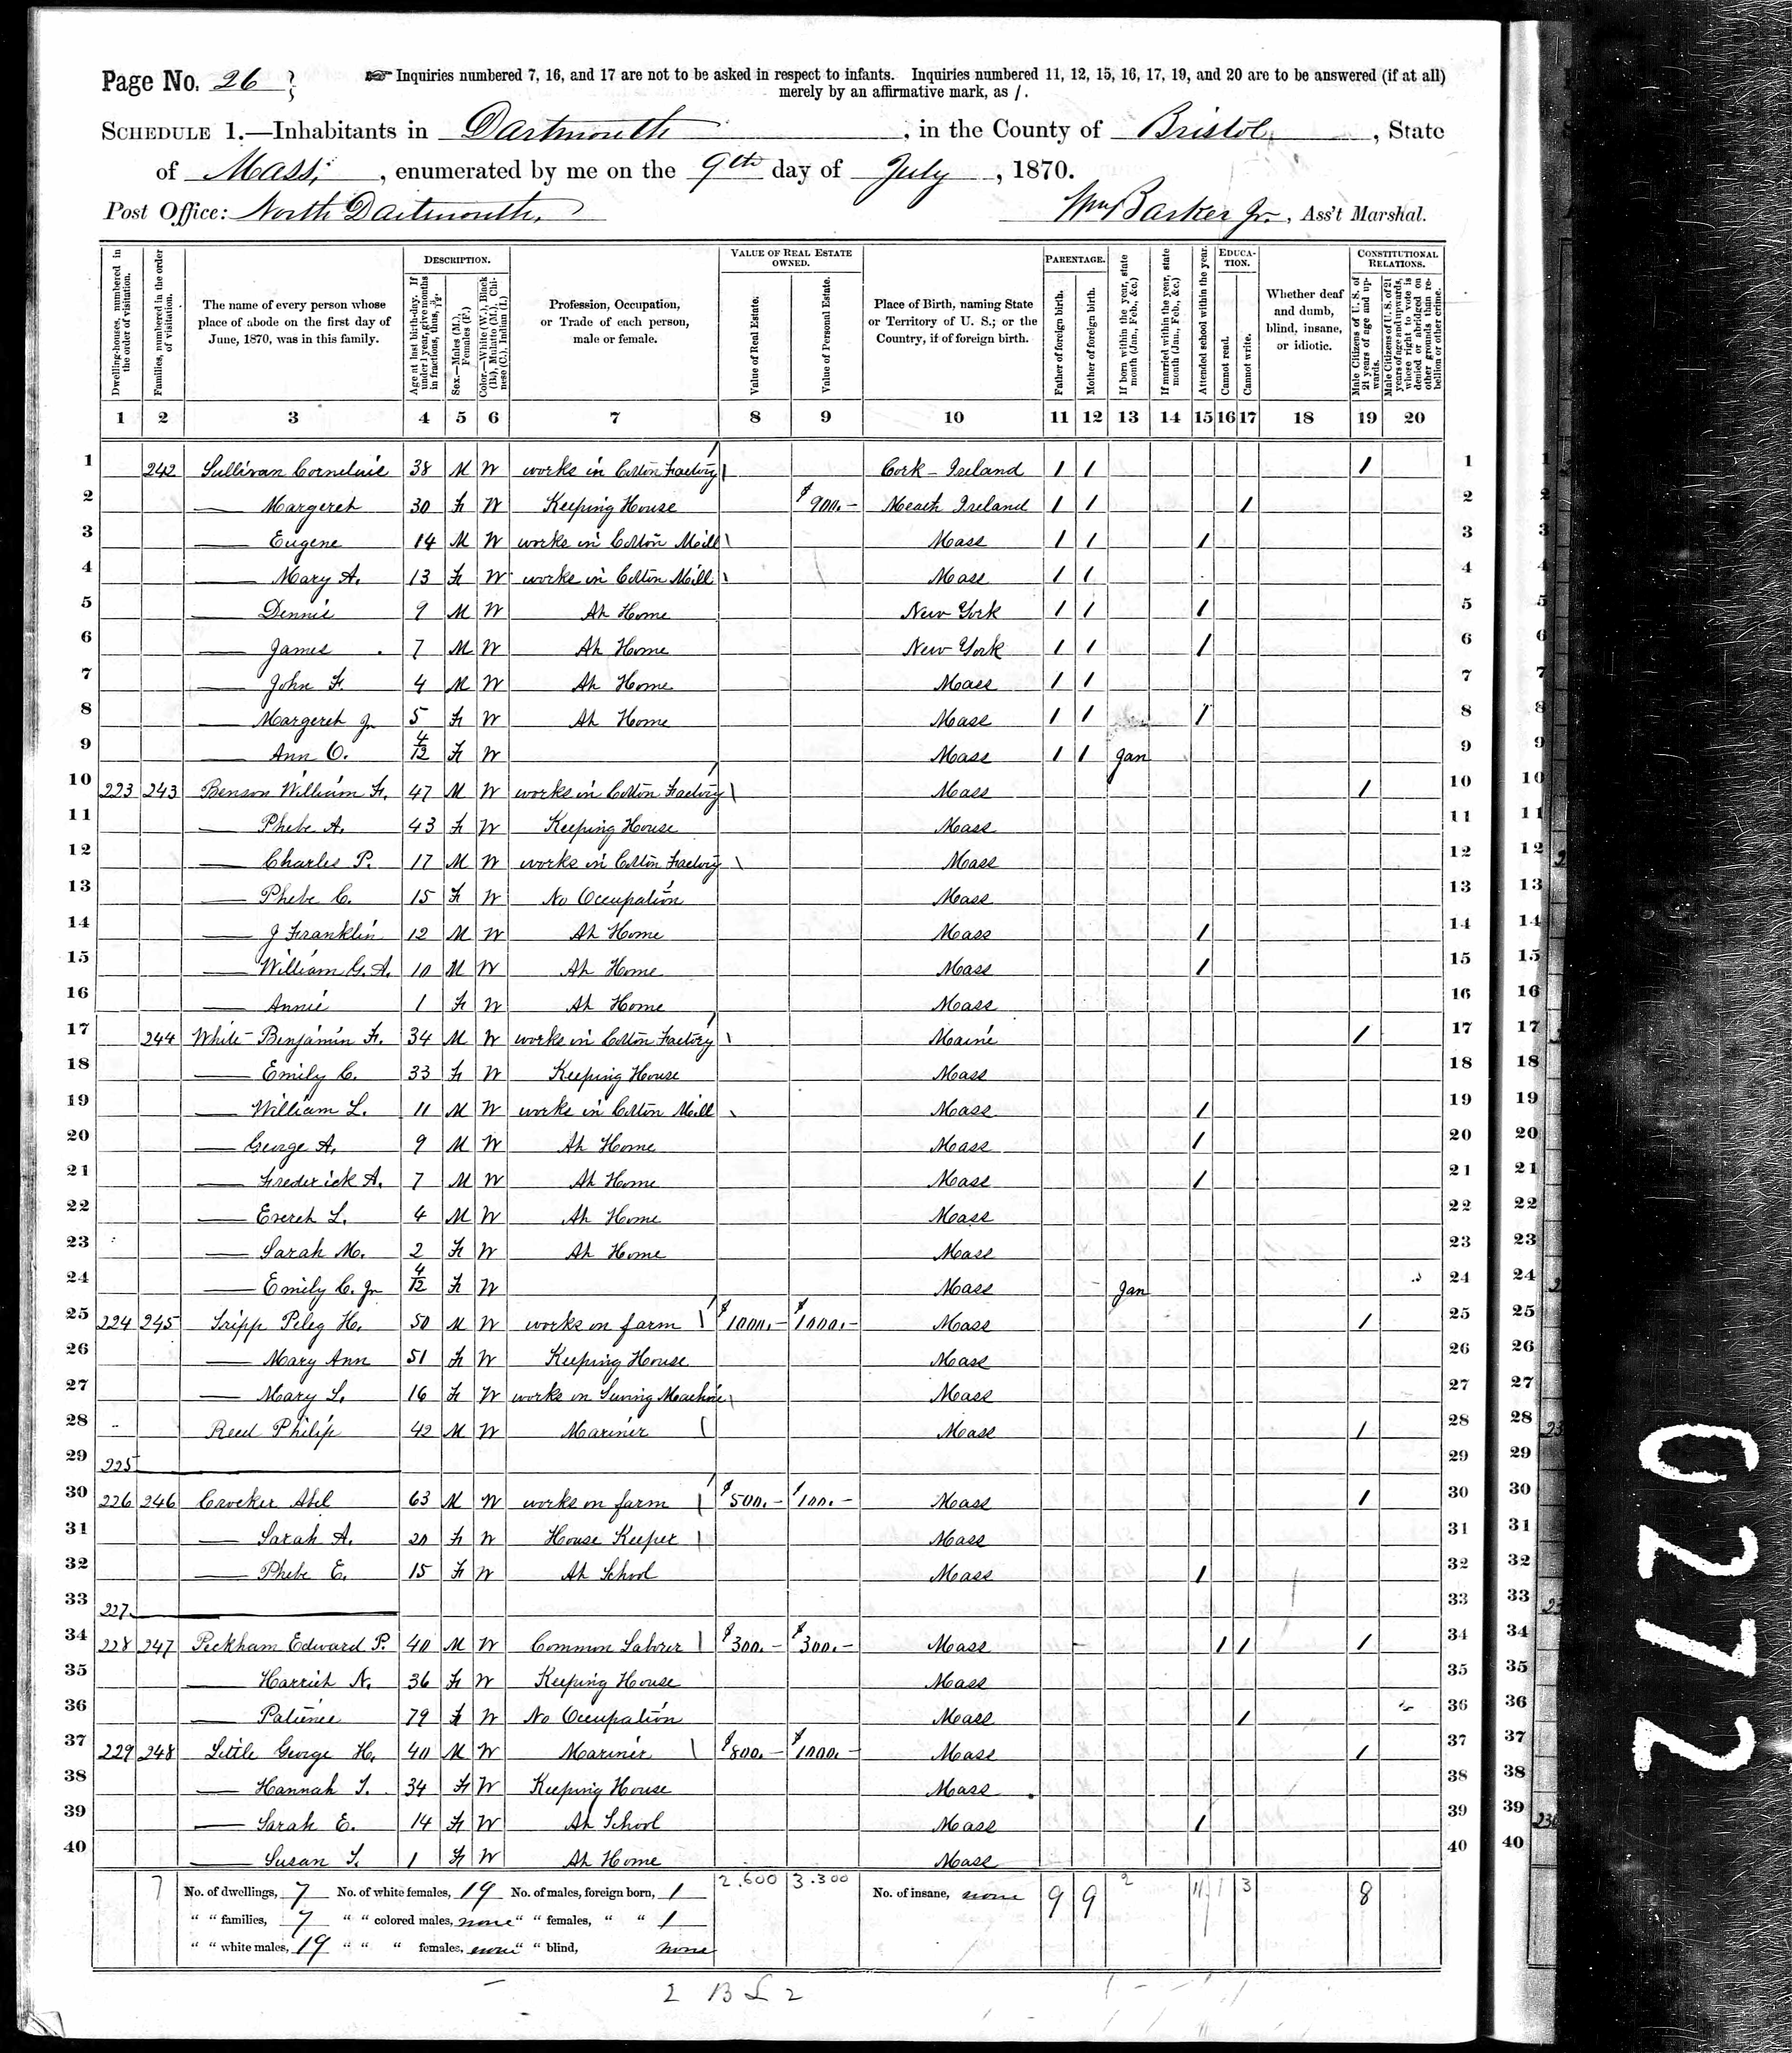 Page No. 26
Inquiries numbered 7, 16, and 17 are not to be asked in respect to infants. Inquiries numbered 11, 12, 15, 16, 17, 19, and 20 are to be answered (if at all)
merely by an affirmative mark, as /.
SCHEDULE 1.—Inhabitants in Dartmouth, in the County of Bristol, State
of Mass, enumerated by me on the 9th day of July, 1870.
Post Office: North Dartmouth. Wm Barker Jr., Ass't Marshal.
Dwelling-houses, numbered in the order of visitation.
Families, numbered in the order of visitation.
The name of every person whose place of abode on the first day of June, 1870, was in this family.
DESCRIPTION.
Age at last birth-day. If under 1 year, give months in fractions, thus, 3/12.
Sex.—Males (M.), Females (F.)
Color.—White (W.), Black (B.), Mulatto (M.), Chinese (C.), Indian (I.)
Profession, Occupation, or Trade of each person, male or female.
VALUE OF REAL ESTATE OWNED.
Value of Real Estate.
Value of Personal Estate.
Place of Birth, naming State or Territory of U. S.; or the Country, if of foreign birth.
PARENTAGE.
Father of foreign birth.
Mother of foreign birth.
If born within the year, state month (Jan., Feb., &c.)
If married within the year, state month (Jan., Feb., &c.)
Attended school within the year.
EDUCATION.
Cannot read.
Cannot write.
Whether deaf and dumb, blind, insane, or idiotic.
CONSTITUTIONAL RELATIONS.
Male Citizens of U. S. of 21 years of age and upwards.
Male Citizens of U. S. of 21 years of age and upwards, where right to vote is denied or abridged on other grounds than rebellion or other crime.
1 2 3 4 5 6 7 8 9 10 11 12 13 14 15 16 17 18 19 20
1 242 Sullivan Cornelius 38 M W works in Cotton Factory Cork - Ireland / / / 1
2 — Margeret 30 F W Keeping House $900.- Meath Ireland / / / 2
3 — Eugene 14 M W works in Cotton Mill Mass / / / 3
4 — Mary A. 13 F W works in Cotton Mill Mass / / 4
5 — Dennis 9 M W At Home New York / / / 5
6 — James 7 M W At Home New York / / / 6
7 — John F. 4 M W At Home Mass / / 7
8 — Margeret Jr 5 F W At Home Mass / / / 8
9 — Ann O. 4/12 F W Mass / / Jan 9
10 223 243 Benson William F. 47 M W works in Cotton Factory Mass / 10
11 — Phebe A. 43 F W Keeping House Mass 11
12 — Charles P. 17 M W works in Cotton Factory Mass 12
13 — Phebe C. 15 F W No Occupation Mass 13
14 — J Franklin 12 M W At Home Mass / 14
15 — William G. A. 10 M W At Home Mass / 15
16 — Annie 1 F W At Home Mass 16
17 244 White Benjamin F. 34 M W works in Cotton Factory Maine / 17
18 — Emily C. 33 F W Keeping House Mass 18
19 — William L. 11 M W works in Cotton Mill Mass / 19
20 — George A. 9 M W At Home Mass / 20
21 — Frederick A. 7 M W At Home Mass / 21
22 — Everet L. 4 M W At Home Mass 22
23 — Sarah M. 2 F W At Home Mass 23
24 — Emily C. Jr 4/12 F W Mass Jan 24
25 224 245 Tripp Peleg H. 50 M W works on farm $1000.- $1000.- Mass / 25
26 — Mary Ann 51 F W Keeping House Mass 26
27 — Mary L. 16 F W works on Sewing Machine Mass 27
28 Reed Philip 42 M W Mariner Mass / 28
29 225 — 29
30 226 246 Crocker Abel 63 M W works on farm $500.- $100.- Mass / 30
31 — Sarah A. 20 F W House Keeper Mass 31
32 — Phebe E. 15 F W At School Mass / 32
33 227 — 33
34 228 247 Peckham Edward P. 40 M W Common Laborer $300.- $300.- Mass / / / 34
35 — Harriet N. 36 F W Keeping House Mass 35
36 — Patience 79 F W No Occupation Mass / 36
37 229 248 Little George H. 40 M W Mariner $800.- $1000.- Mass / 37
38 — Hannah T. 34 F W Keeping House Mass 38
39 — Sarah E. 14 F W At School Mass / 39
40 — Susan T. 1 F W At Home Mass 40
7 No. of dwellings, 7 No. of white females, 19 No. of males, foreign born, 1 2.600 3.300 No. of insane, none 9 9 2 11 1 3 8
" " families, 7 " " colored males, none " " females, " " 1
" " white males, 19 " " " females, none " " blind, none
2 B L 2
0272